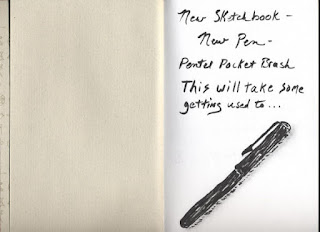 New Sketchbook -
New Pen -
Pentel Pocket Brush
This will take some
getting used to...